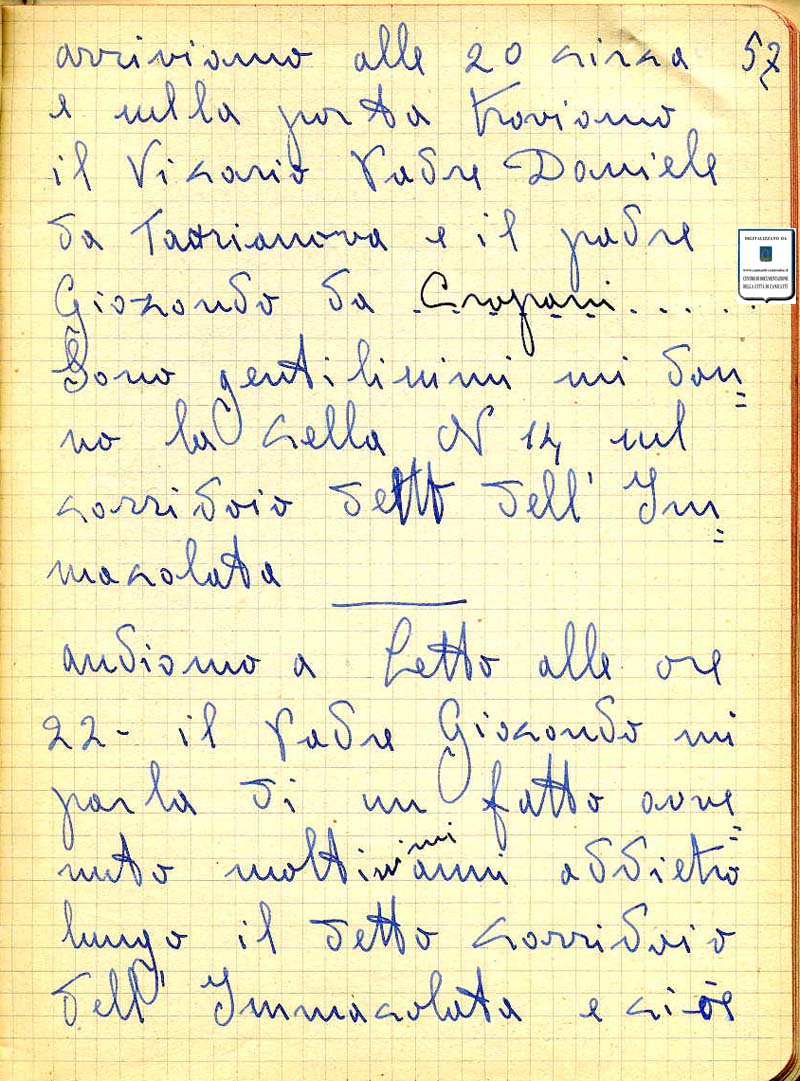 arriviamo alle 20 circa 57
e sulla porta troviamo
il Vicario Padre Daniele
DIGITALIZZATO DA
www.canicatti-centrodoc.it
CENTRO DI DOCUMENTAZIONE
DELLA CITTÀ DI CANICATTÌ
da Taurianova e il padre
Giocondo da Cropani......
Sono gentilissimi mi dan=
no la cella N 14 sul
corridoio detto dell' Im=
macolata
andiamo a letto alle ore
22- il Padre Giocondo mi
parla di un fatto avve=
nuto moltissimi anni addietro
lungo il detto corridoio
dell' Immacolata e cioè